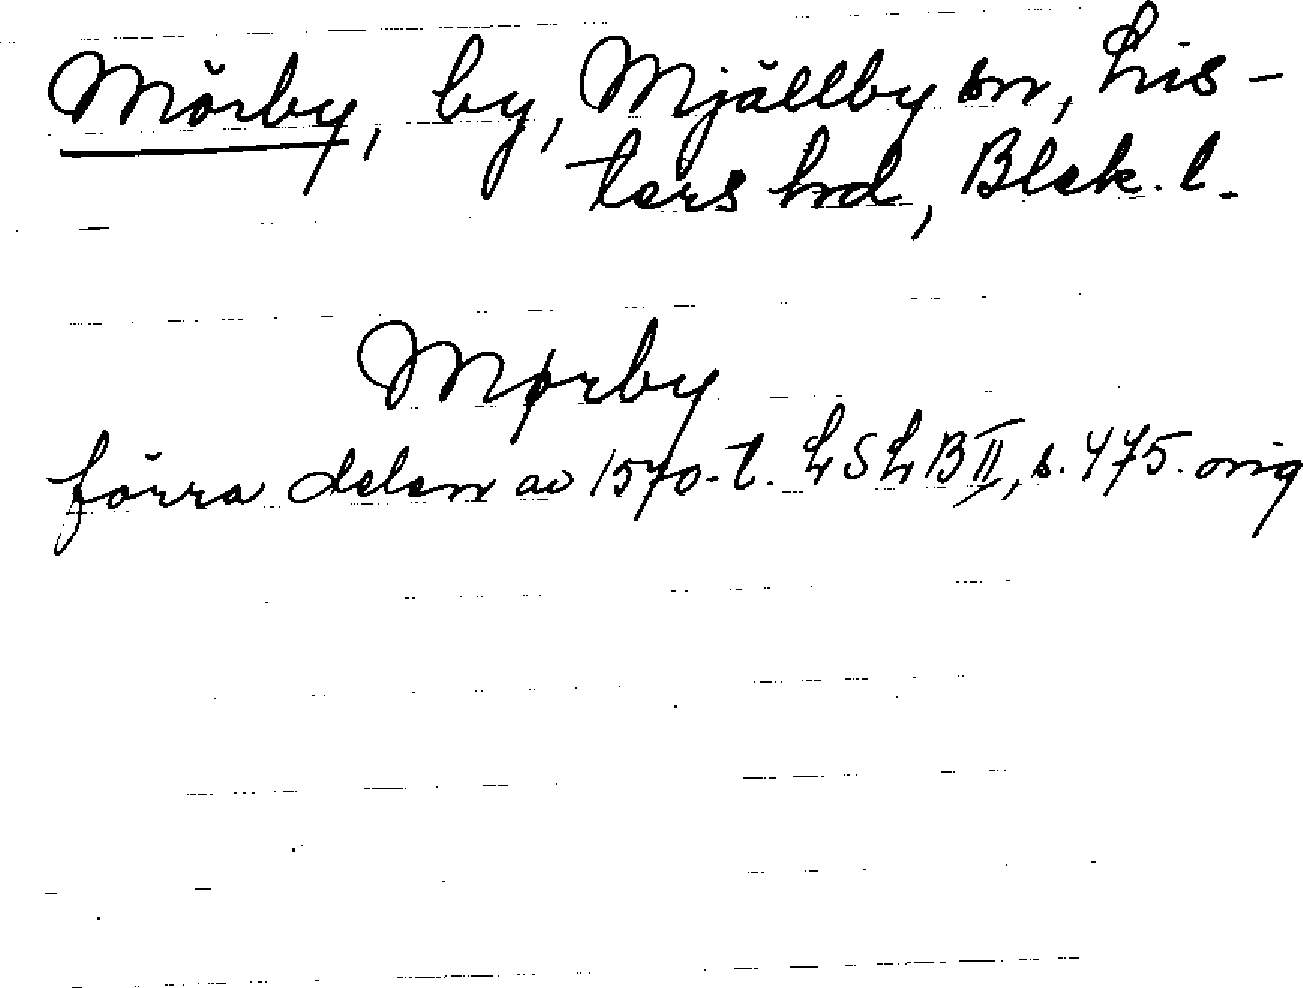 Mörby, by, Mjällby sn, Lis-
ters hd, Blek. l.
Mørby
förra delen av 1570-t. LSLB II, s. 475. orig